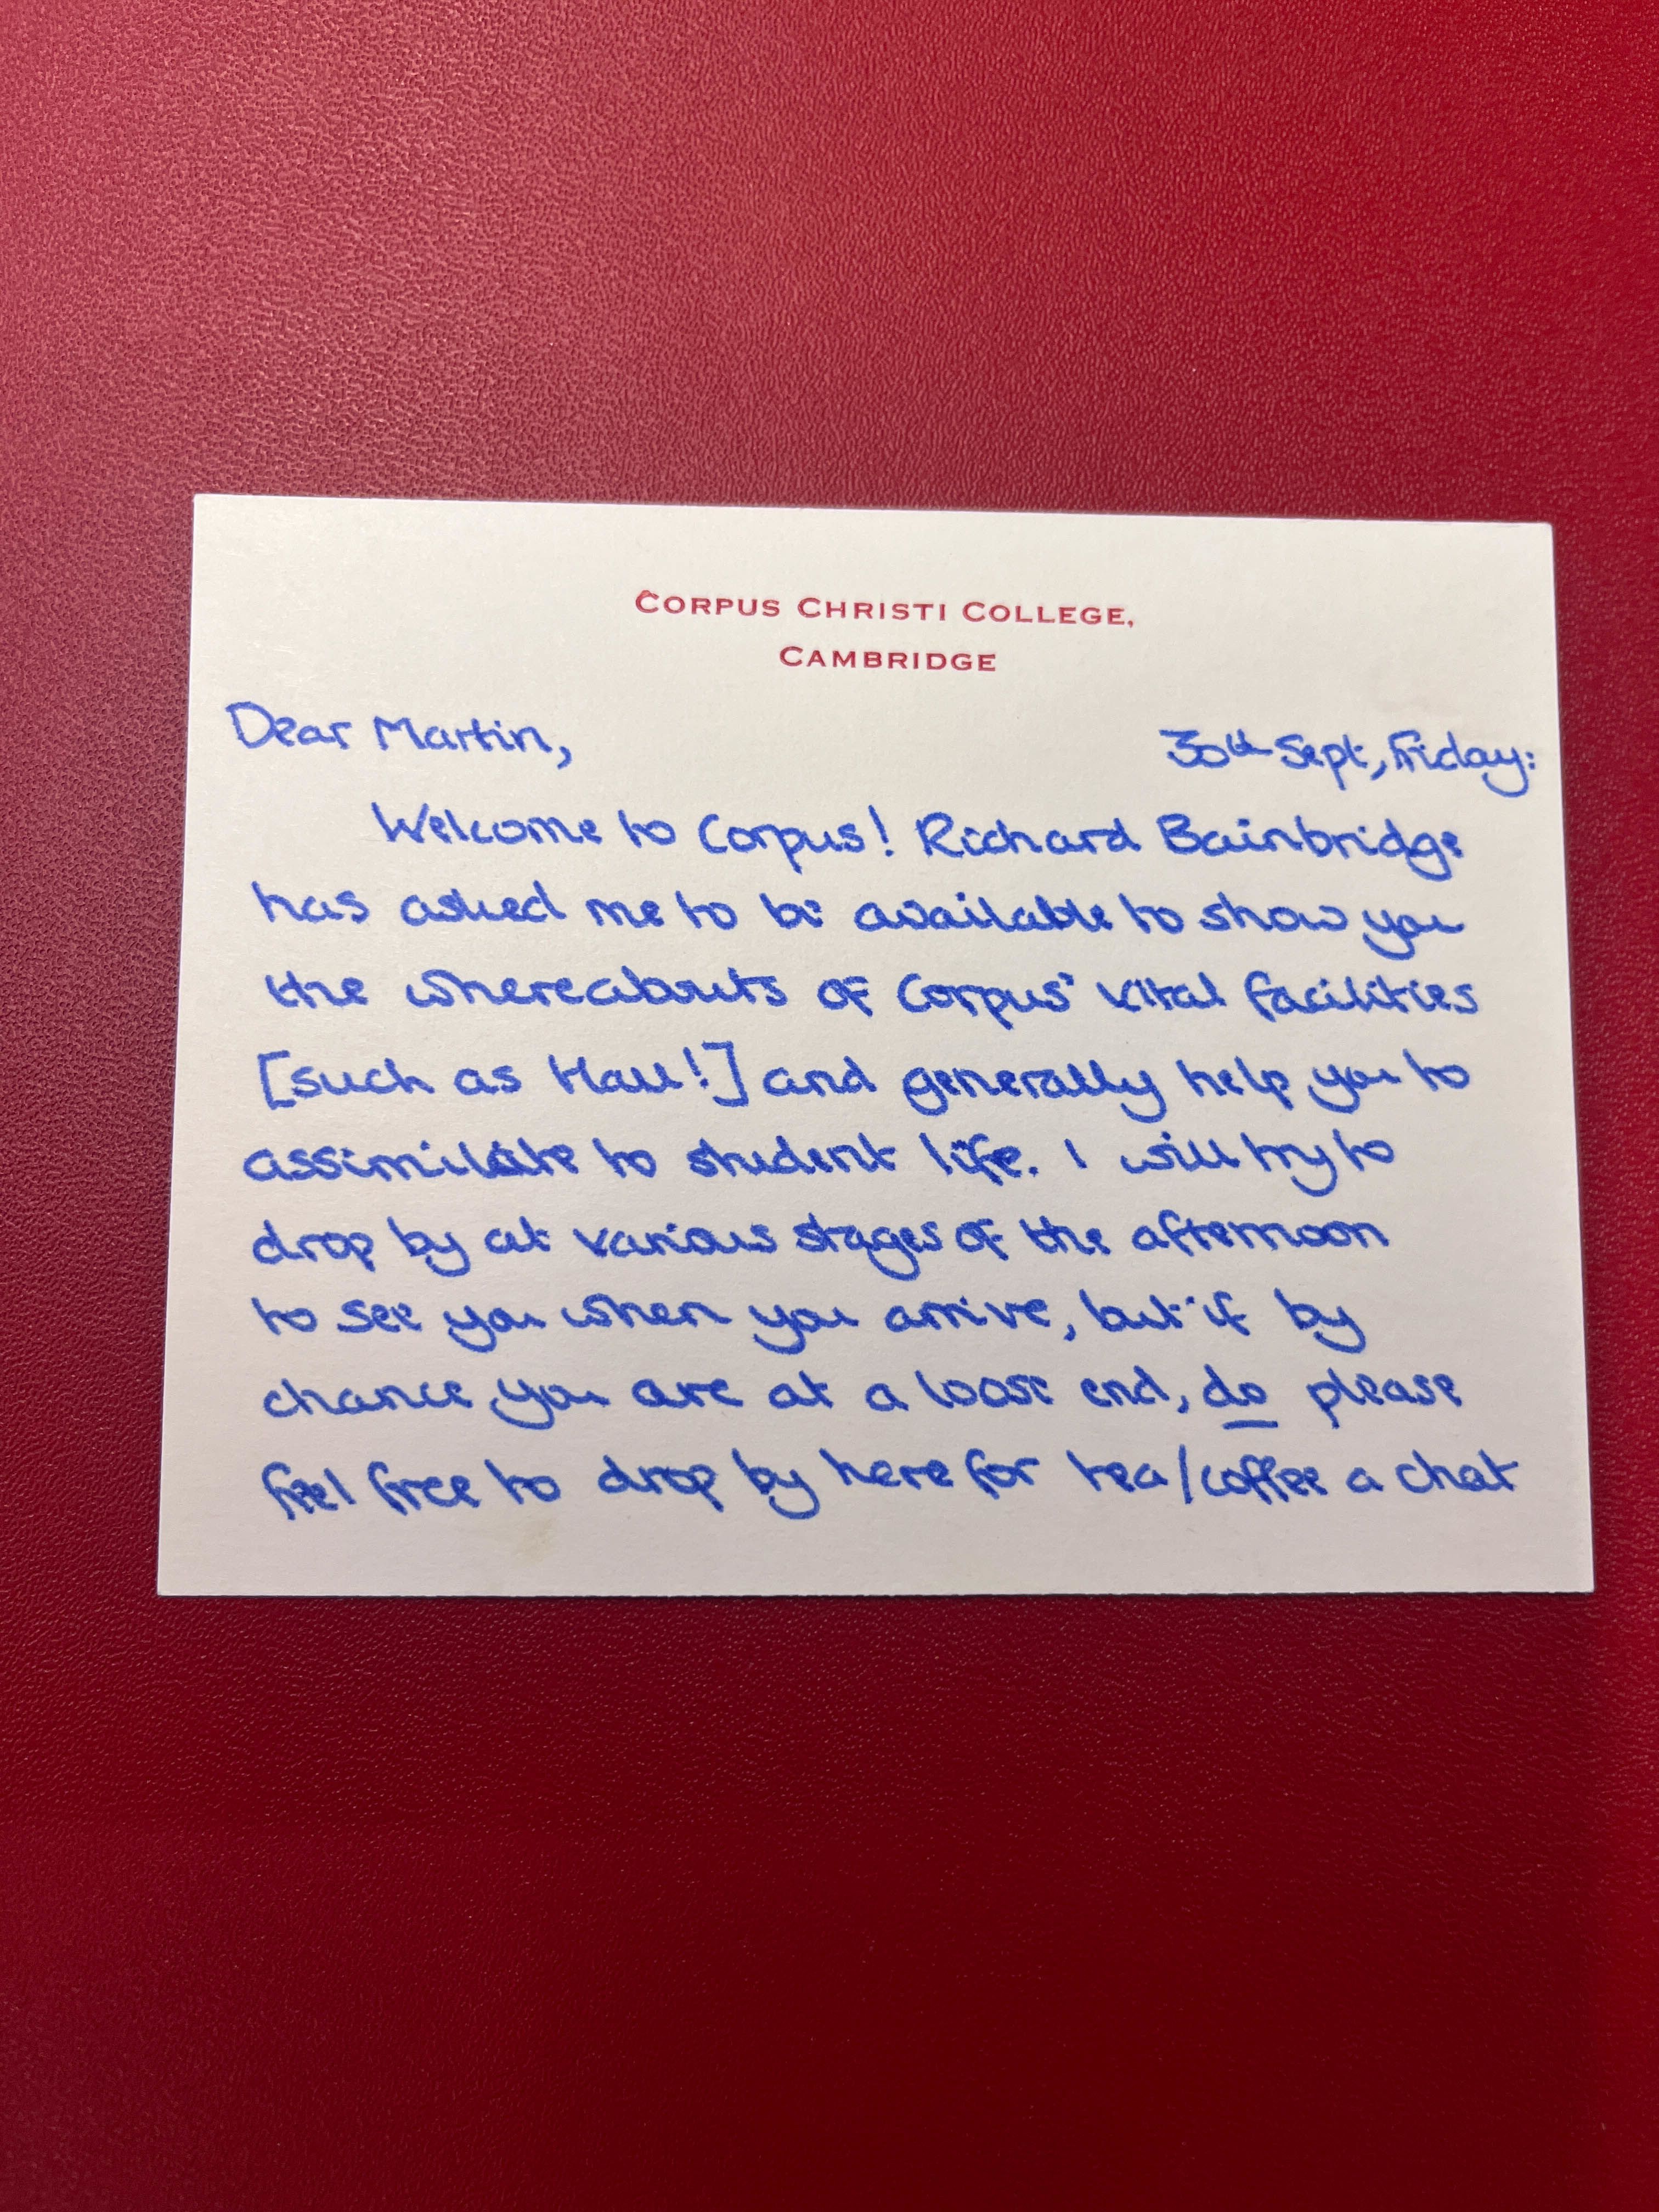 CORPUS CHRISTI COLLEGE,
CAMBRIDGE
Dear Martin,
30th Sept, Friday:
Welcome to Corpus! Richard Bainbridge
has asked me to be available to show you
the whereabouts of Corpus' vital facilities
[such as Hall!] and generally help you to
assimilate to student life. I will try to
drop by at various stages of the afternoon
to see you when you arrive, but if by
chance you are at a loose end, do please
feel free to drop by here for tea/coffee a chat